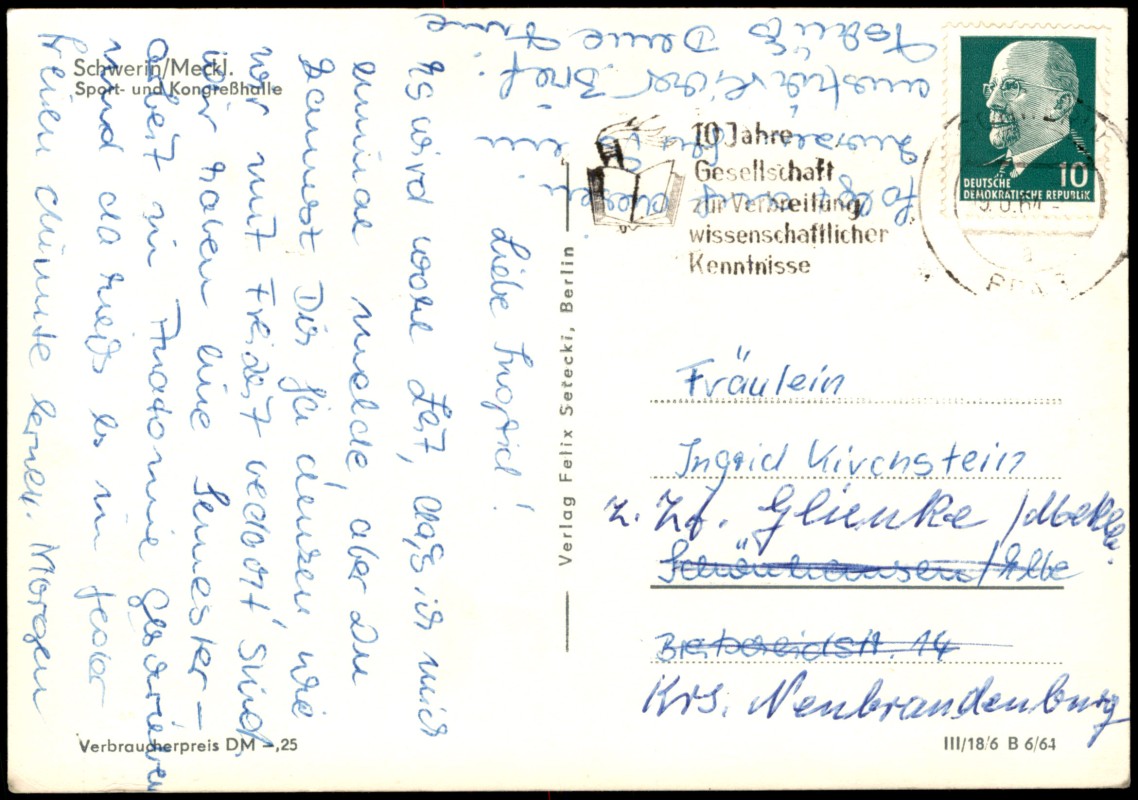 Schwerin/Meckl.
Sport- und Kongreßhalle
Liebe Ingrid!
Es wird wohl Zeit, daß ich mich
einmal melde, aber Du
kannst Dir ja denken, wie
wir mit Freizeit bedort sind.
Wir haben eine Semester-
arbeit in Anatomie geschrieben
und da heißt es in jeder
freien Minute lernen. Morgen
folgt
ein
ausführlicher Brief.
Tschüß Deine
Verlag Felix Setecki, Berlin
10 Jahre
Gesellschaft
zur Verbreitung
wissenschaftlicher
Kenntnisse
10
DEUTSCHE
DEMOKRATISCHE REPUBLIK
Fräulein
Ingrid Kirchstein
z. Zt. Glienke /Meckl.
Schönhausen/Elbe
14
Krs. Neubrandenburg
Verbraucherpreis DM -,25
III/18/6 B 6/64